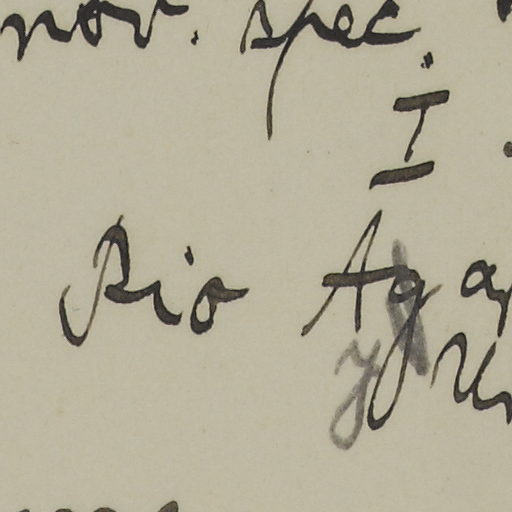 nov. spec.
I.
Rio Ag
y